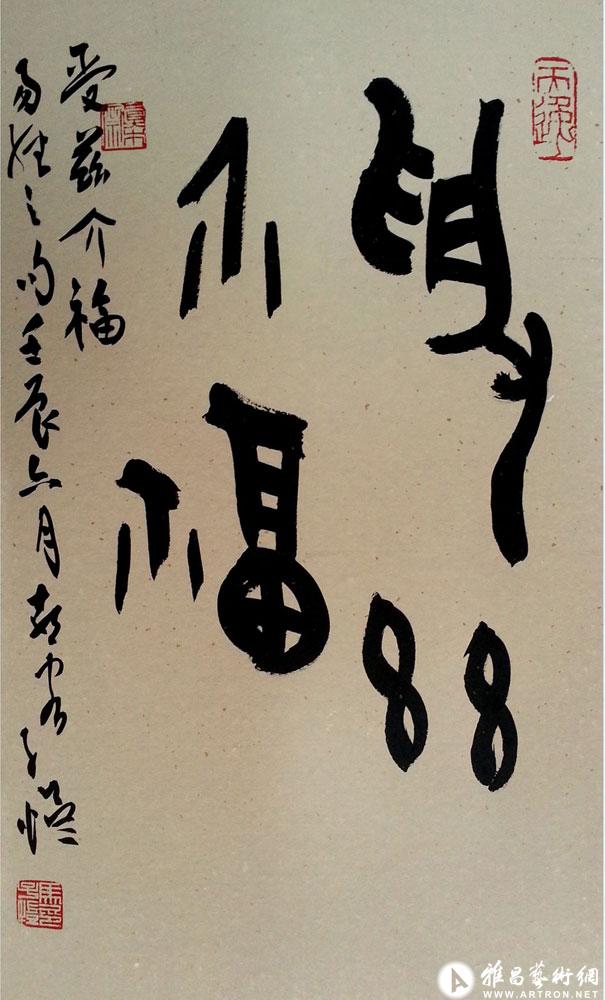 受茲
介福
受茲介福
易經之句壬辰六月子愷
雅昌藝術網
WWW.ARTRON.NET